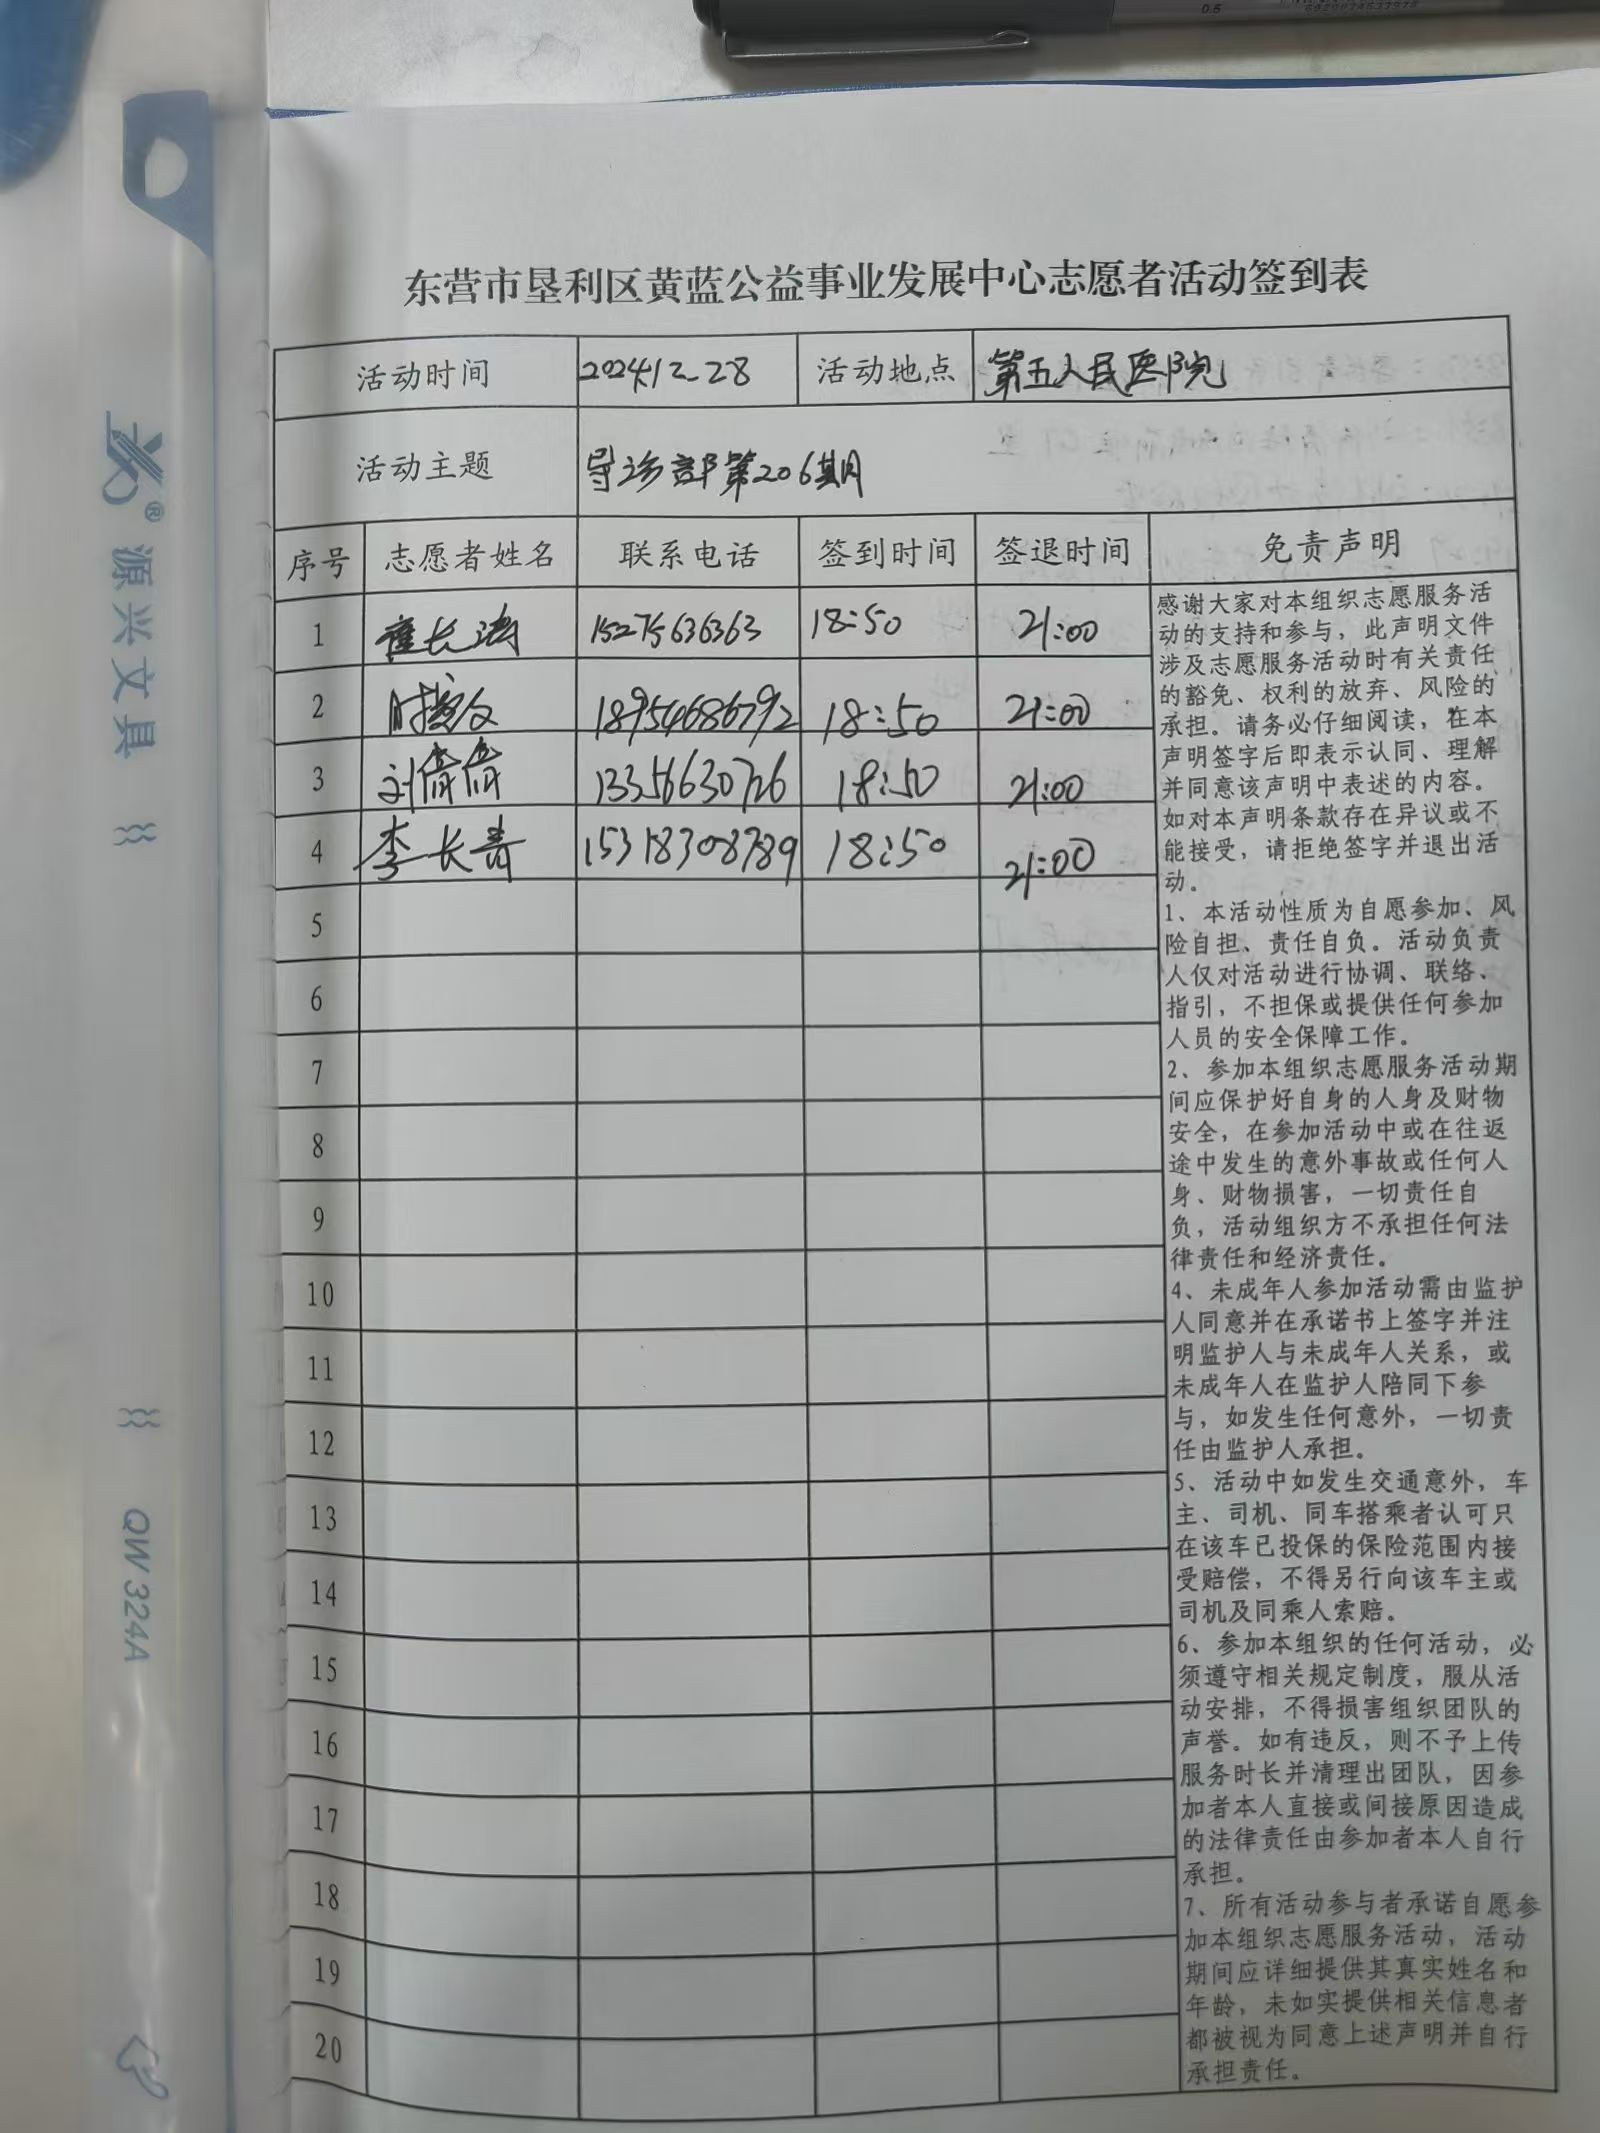 0.5
6920074537978
东营市垦利区黄蓝公益事业发展中心志愿者活动签到表
活动时间 2024.12.28 活动地点 第五人民医院
活动主题 导诊部第206期
序号 志愿者姓名 联系电话 签到时间 签退时间 免责声明
1 崔长涛 15275636363 18:50 21:00
2 18954686792 18:50 21:00
3 刘倩倩 13356630726 18:50 21:00
4 李长青 15318308789 18:50 21:00
5
6
7
8
9
10
11
12
13
14
15
16
17
18
19
20
感谢大家对本组织志愿服务活
动的支持和参与，此声明文件
涉及志愿服务活动时有关责任
的豁免、权利的放弃、风险的
承担。请务必仔细阅读，在本
声明签字后即表示认同、理解
并同意该声明中表述的内容。
如对本声明条款存在异议或不
能接受，请拒绝签字并退出活
动。
1、本活动性质为自愿参加、风
险自担、责任自负。活动负责
人仅对活动进行协调、联络、
指引，不担保或提供任何参加
人员的安全保障工作。
2、参加本组织志愿服务活动期
间应保护好自身的人身及财物
安全，在参加活动中或在往返
途中发生的意外事故或任何人
身、财物损害，一切责任自
负，活动组织方不承担任何法
律责任和经济责任。
4、未成年人参加活动需由监护
人同意并在承诺书上签字并注
明监护人与未成年人关系，或
未成年人在监护人陪同下参
与，如发生任何意外，一切责
任由监护人承担。
5、活动中如发生交通意外，车
主、司机、同车搭乘者认可只
在该车已投保的保险范围内接
受赔偿，不得另行向该车主或
司机及同乘人索赔。
6、参加本组织的任何活动，必
须遵守相关规定制度，服从活
动安排，不得损害组织团队的
声誉。如有违反，则不予上传
服务时长并清理出团队，因参
加者本人直接或间接原因造成
的法律责任由参加者本人自行
承担。
7、所有活动参与者承诺自愿参
加本组织志愿服务活动，活动
期间应详细提供其真实姓名和
年龄，未如实提供相关信息者
都被视为同意上述声明并自行
承担责任。
® 源兴文具
QW 324A